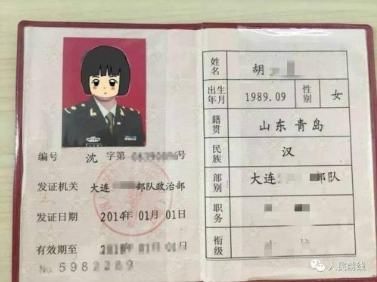 编号 沈 字第 号
发证机关 大连 部队政治部
发证日期 2014年 01月 01日
有效期至 年 月 01日
No 5982289
姓名 胡
出生年月 1989.09 性别 女
籍贯 山东 青岛
民族 汉
部别 大连 部队
职务
衔级
人民前线